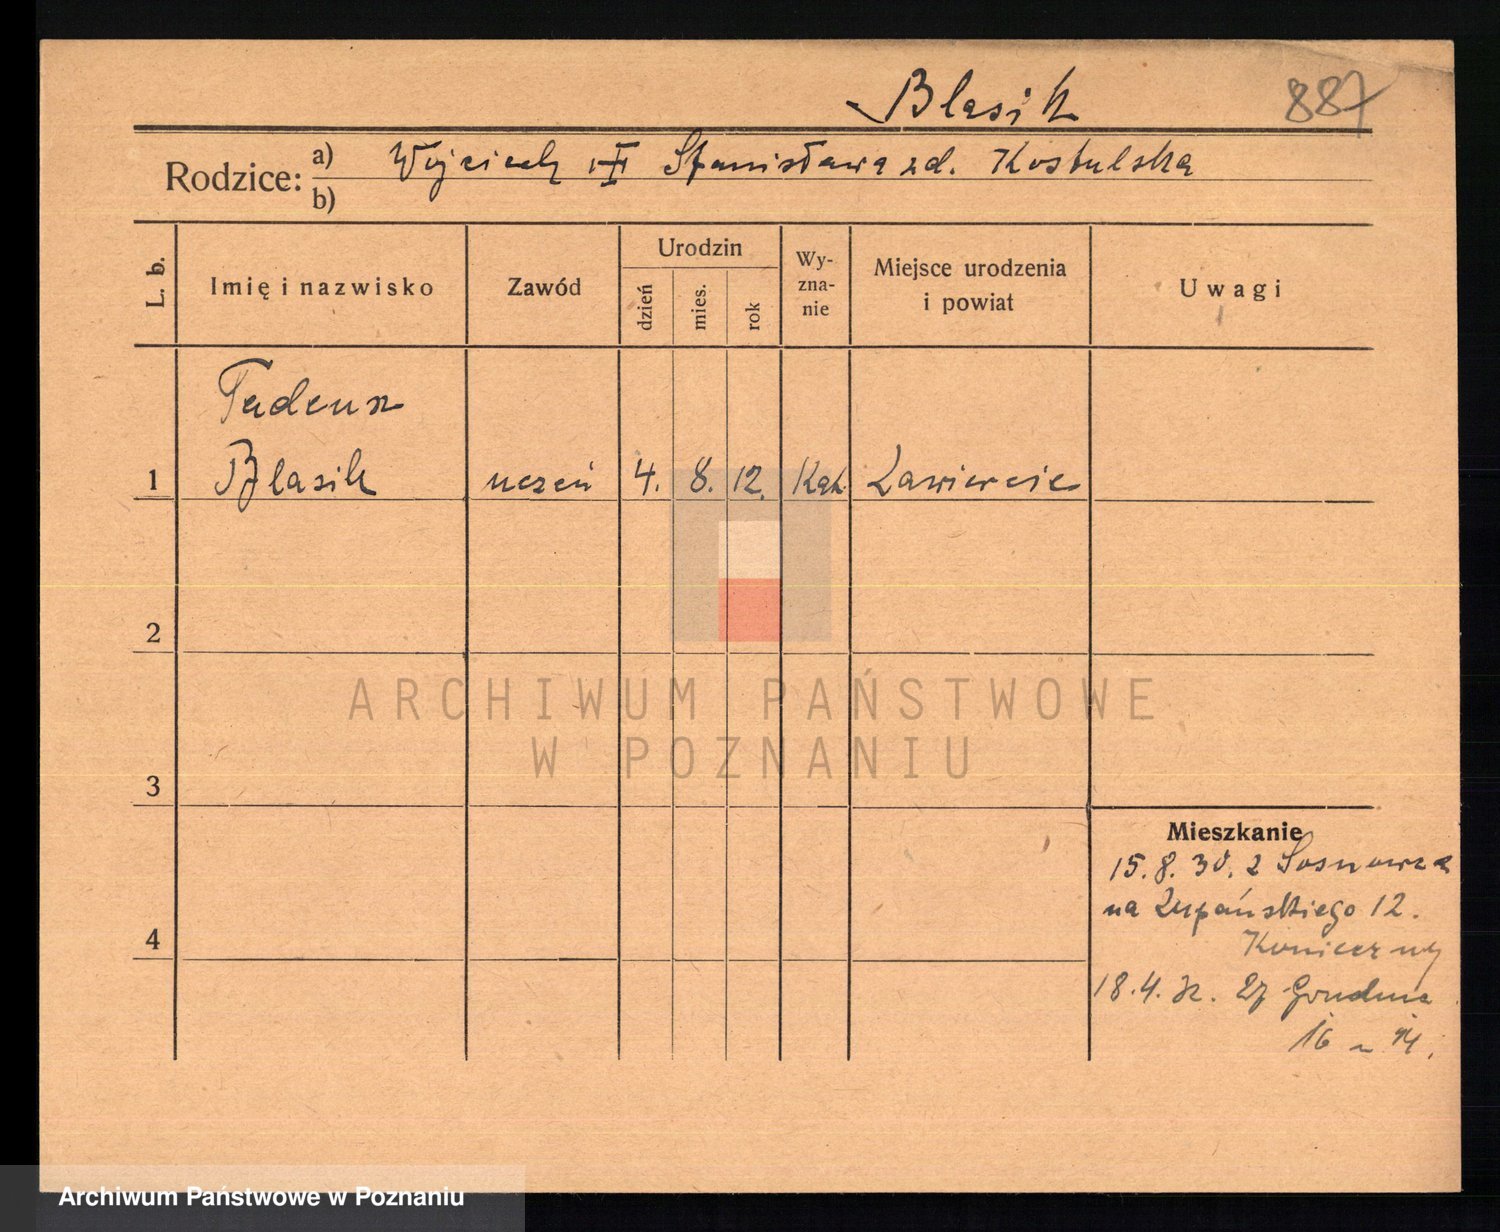 Blasik 887
Rodzice: a) Wojciech i Stanisława zd. Kostulska
b)
L. b. Imię i nazwisko Zawód Urodzin dzień mies. rok Wy-zna-nie Miejsce urodzenia i powiat Uwagi
Tadeusz
1 Blasik uczeń 4. 8. 12. Kat. Zawiercie
2
ARCHIWUM PAŃSTWOWE
W POZNANIU
3
Mieszkanie
15.8.30. z Sosnowca
na Żupańskiego 12.
4
18.4.32. 27 Grudnia
16 14.
Archiwum Państwowe w Poznaniu